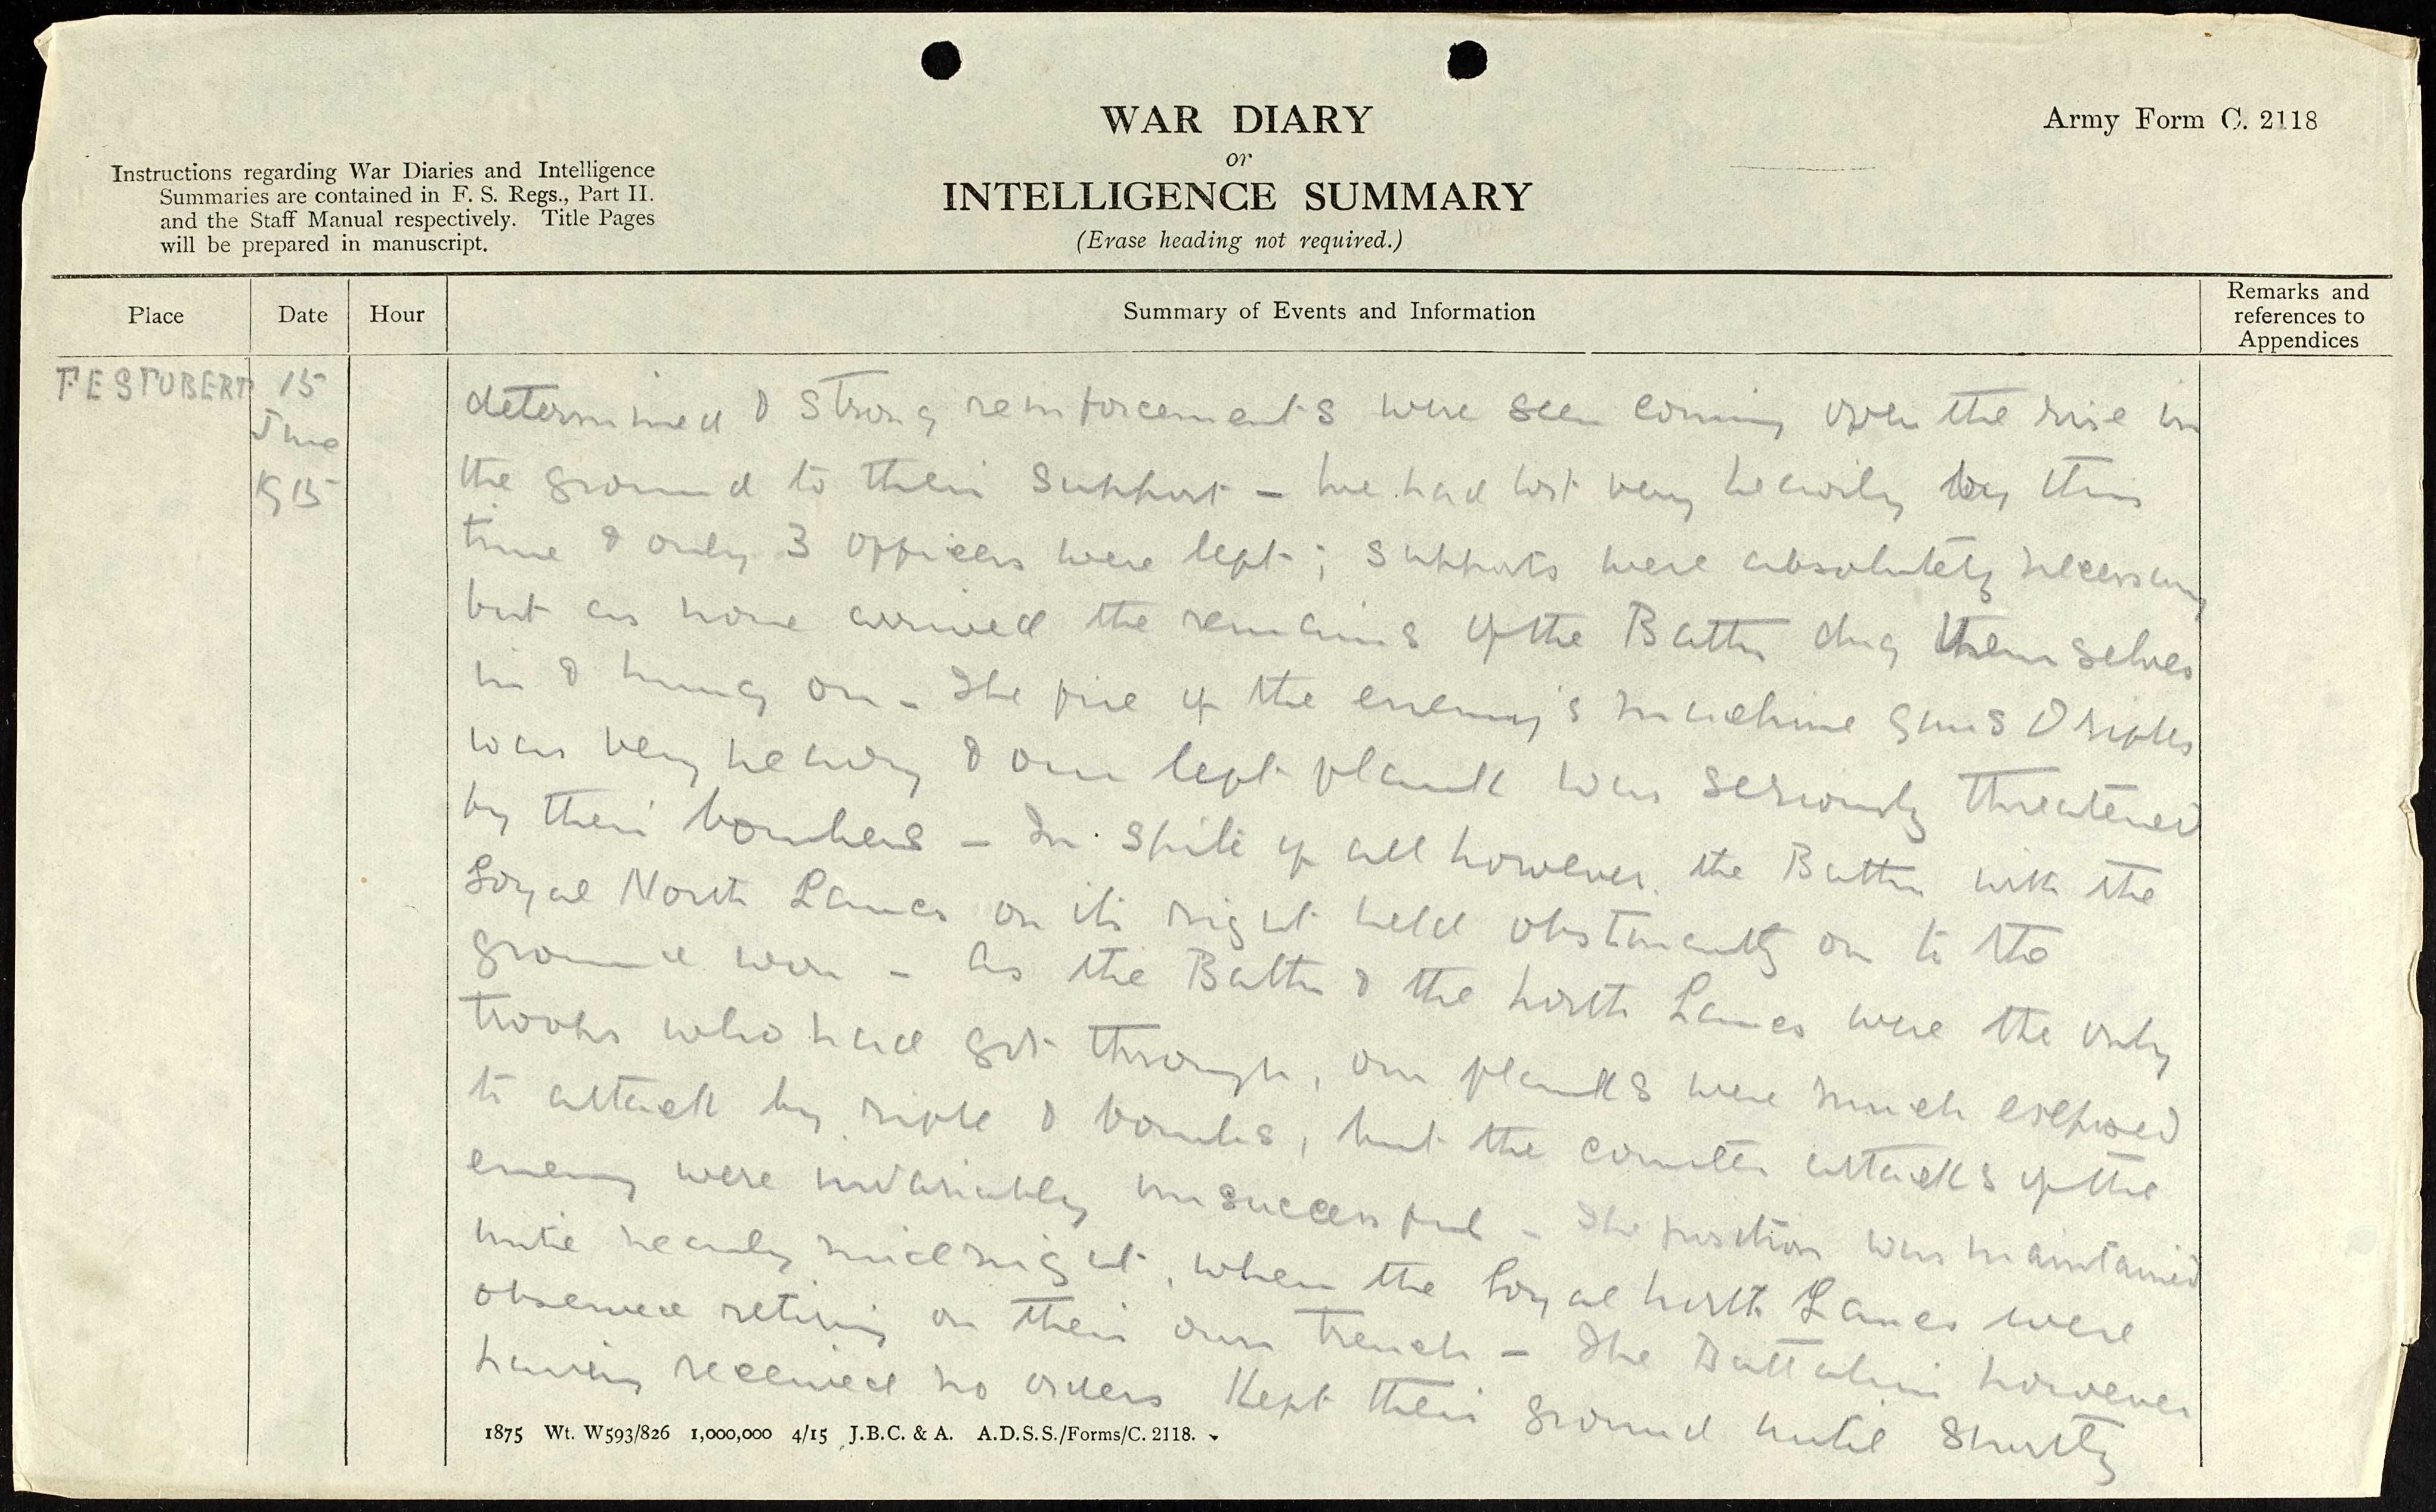 WAR DIARY
or
INTELLIGENCE SUMMARY
(Erase heading not required.)
Army Form C. 2118
Instructions regarding War Diaries and Intelligence
Summaries are contained in F. S. Regs., Part II.
and the Staff Manual respectively. Title Pages
will be prepared in manuscript.
Place Date Hour Summary of Events and Information Remarks and references to Appendices
FESTUBERT 15
June
1915
determined & strong reinforcements were seen coming over the rise in
the ground to their support – We had lost very heavily by this
time & only 3 officers were left; supports were absolutely necessary
but as none arrived the remains of the Battn dug themselves
in & hung on – The fire of the enemy's machine guns & rifles
was very heavy & our left flank was seriously threatened
by their bombers – In spite of all however the Battn with the
Loyal North Lancs on its right held obstinately on to the
ground won – As the Battn & the North Lancs were the only
troops who had got through, our flanks were much exposed
to attack by rifle & bombs, but the counter attacks of the
enemy were invariably unsuccessful – The position was maintained
until nearly midnight, when the Loyal North Lancs were
observed retiring on their own trench – The Battalion however
having received no orders kept their ground until shortly
1875 Wt. W593/826 1,000,000 4/15 J.B.C. & A. A.D.S.S./Forms/C. 2118.